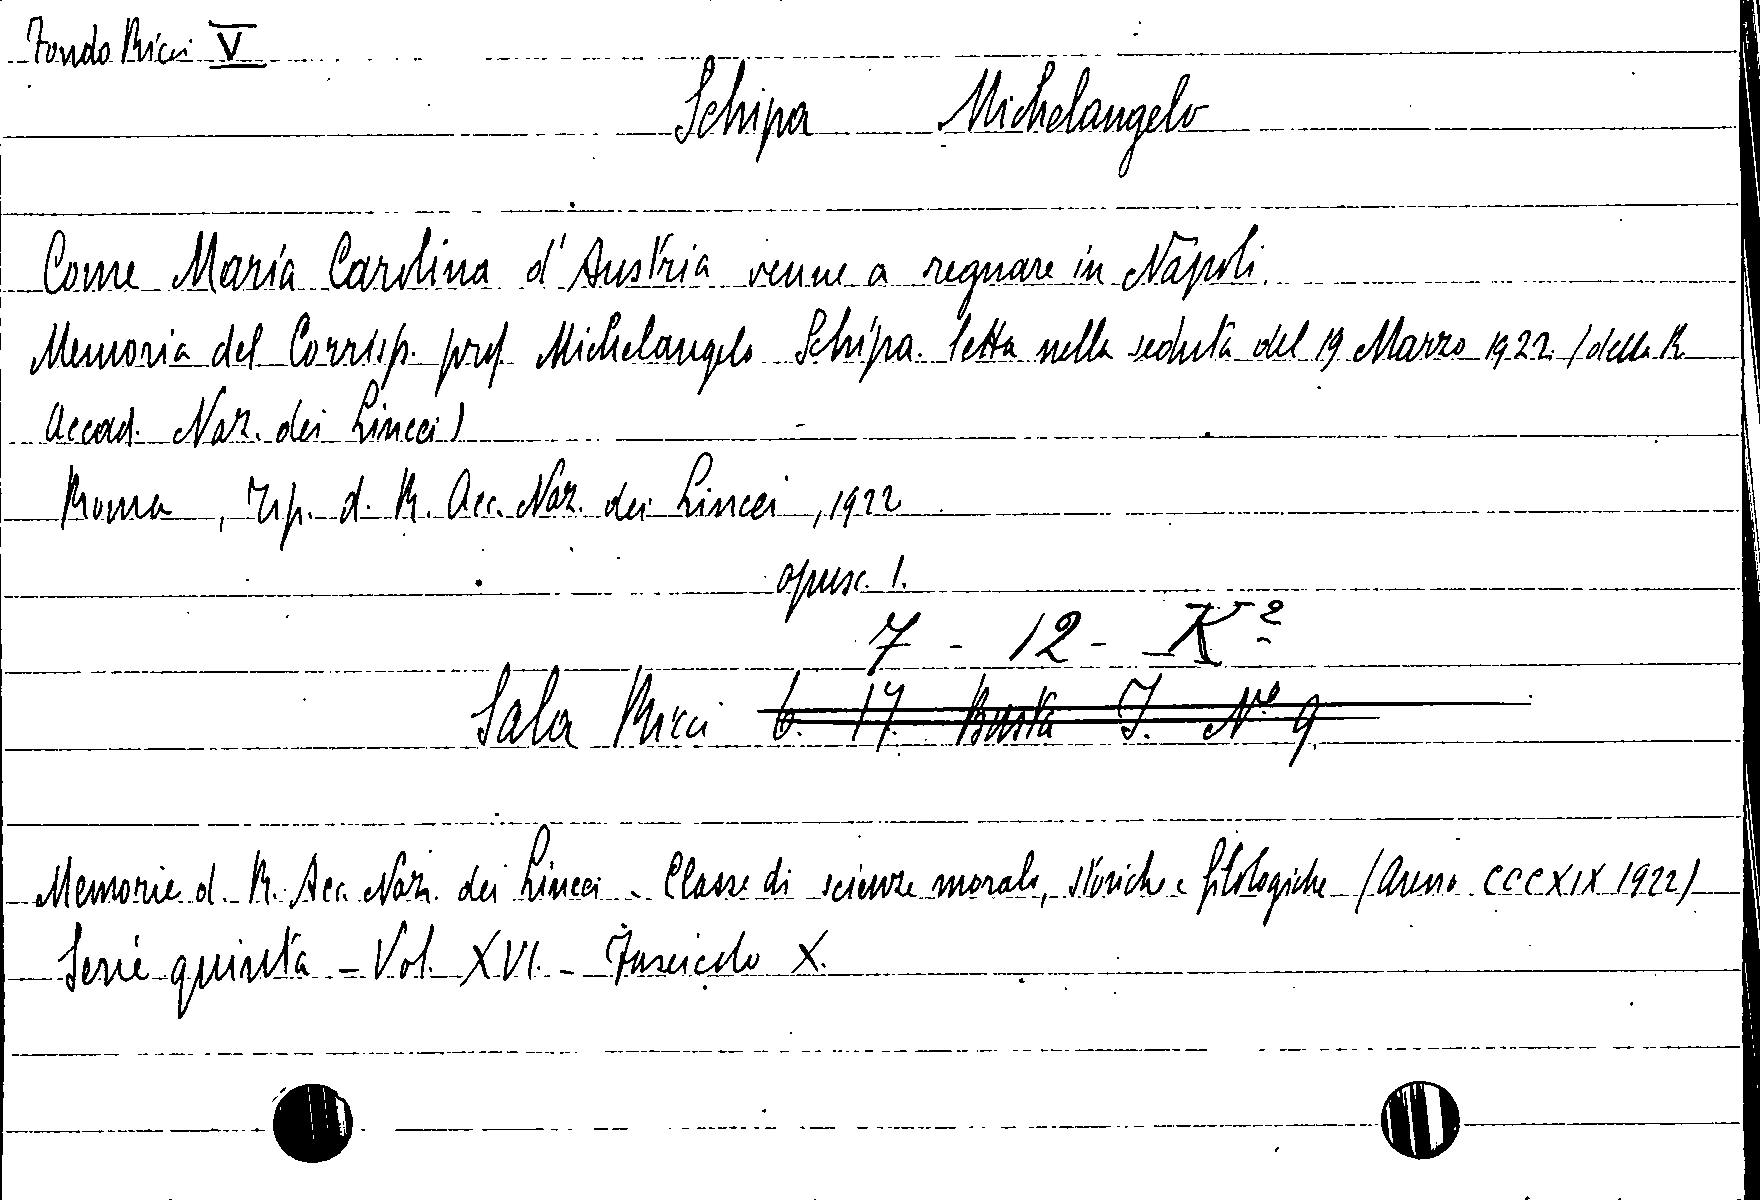 Fondo Ricci V
Schipa Michelangelo
Come Maria Carolina d'Austria venne a regnare in Napoli.
Memoria del Corrisp. prof. Michelangelo Schipa letta nella seduta del 19 Marzo 1922 (della R.
Accad. Naz. dei Lincei)
Roma, Tip. d. R. Acc. Naz. dei Lincei, 1922
opusc. 1.
7 - 12 - K²
Sala Ricci 6. 17. Busta I. N° 9
Memorie d. R. Acc. Naz. dei Lincei - Classe di scienze morali, storiche e filologiche (Anno CCCXIX 1922)
Serie quinta - Vol. XVI. - Fascicolo X.